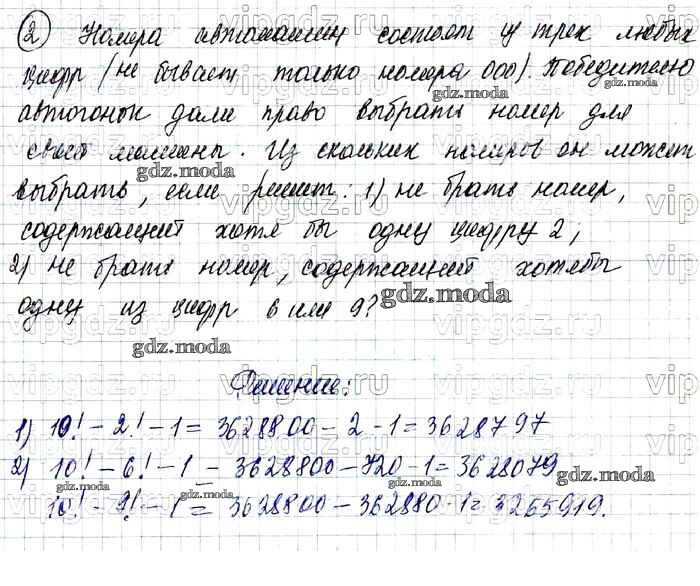 2 Номера автомашин состоят из трех любых
цифр (не бывает только номера 000). Победителю
автогонок дали право выбрать номер для
своей машины. Из скольких номеров он может
выбрать, если решит: 1) не брать номер,
содержащий хотя бы одну цифру 2;
2) не брать номер, содержащий хотябы
одну из цифр 6 или 9?
Решение:
1) 10! - 2! - 1 = 3628800 - 2 - 1 = 3628797
2) 10! - 6! - 1 = 3628800 - 720 - 1 = 3628079
10! - 9! - 1 = 3628800 - 362880 - 1 = 3265919.
gdz.moda
gdz.moda
gdz.moda
gdz.moda
gdz.moda
gdz.moda
gdz.moda
gdz.moda
vipgdz.ru